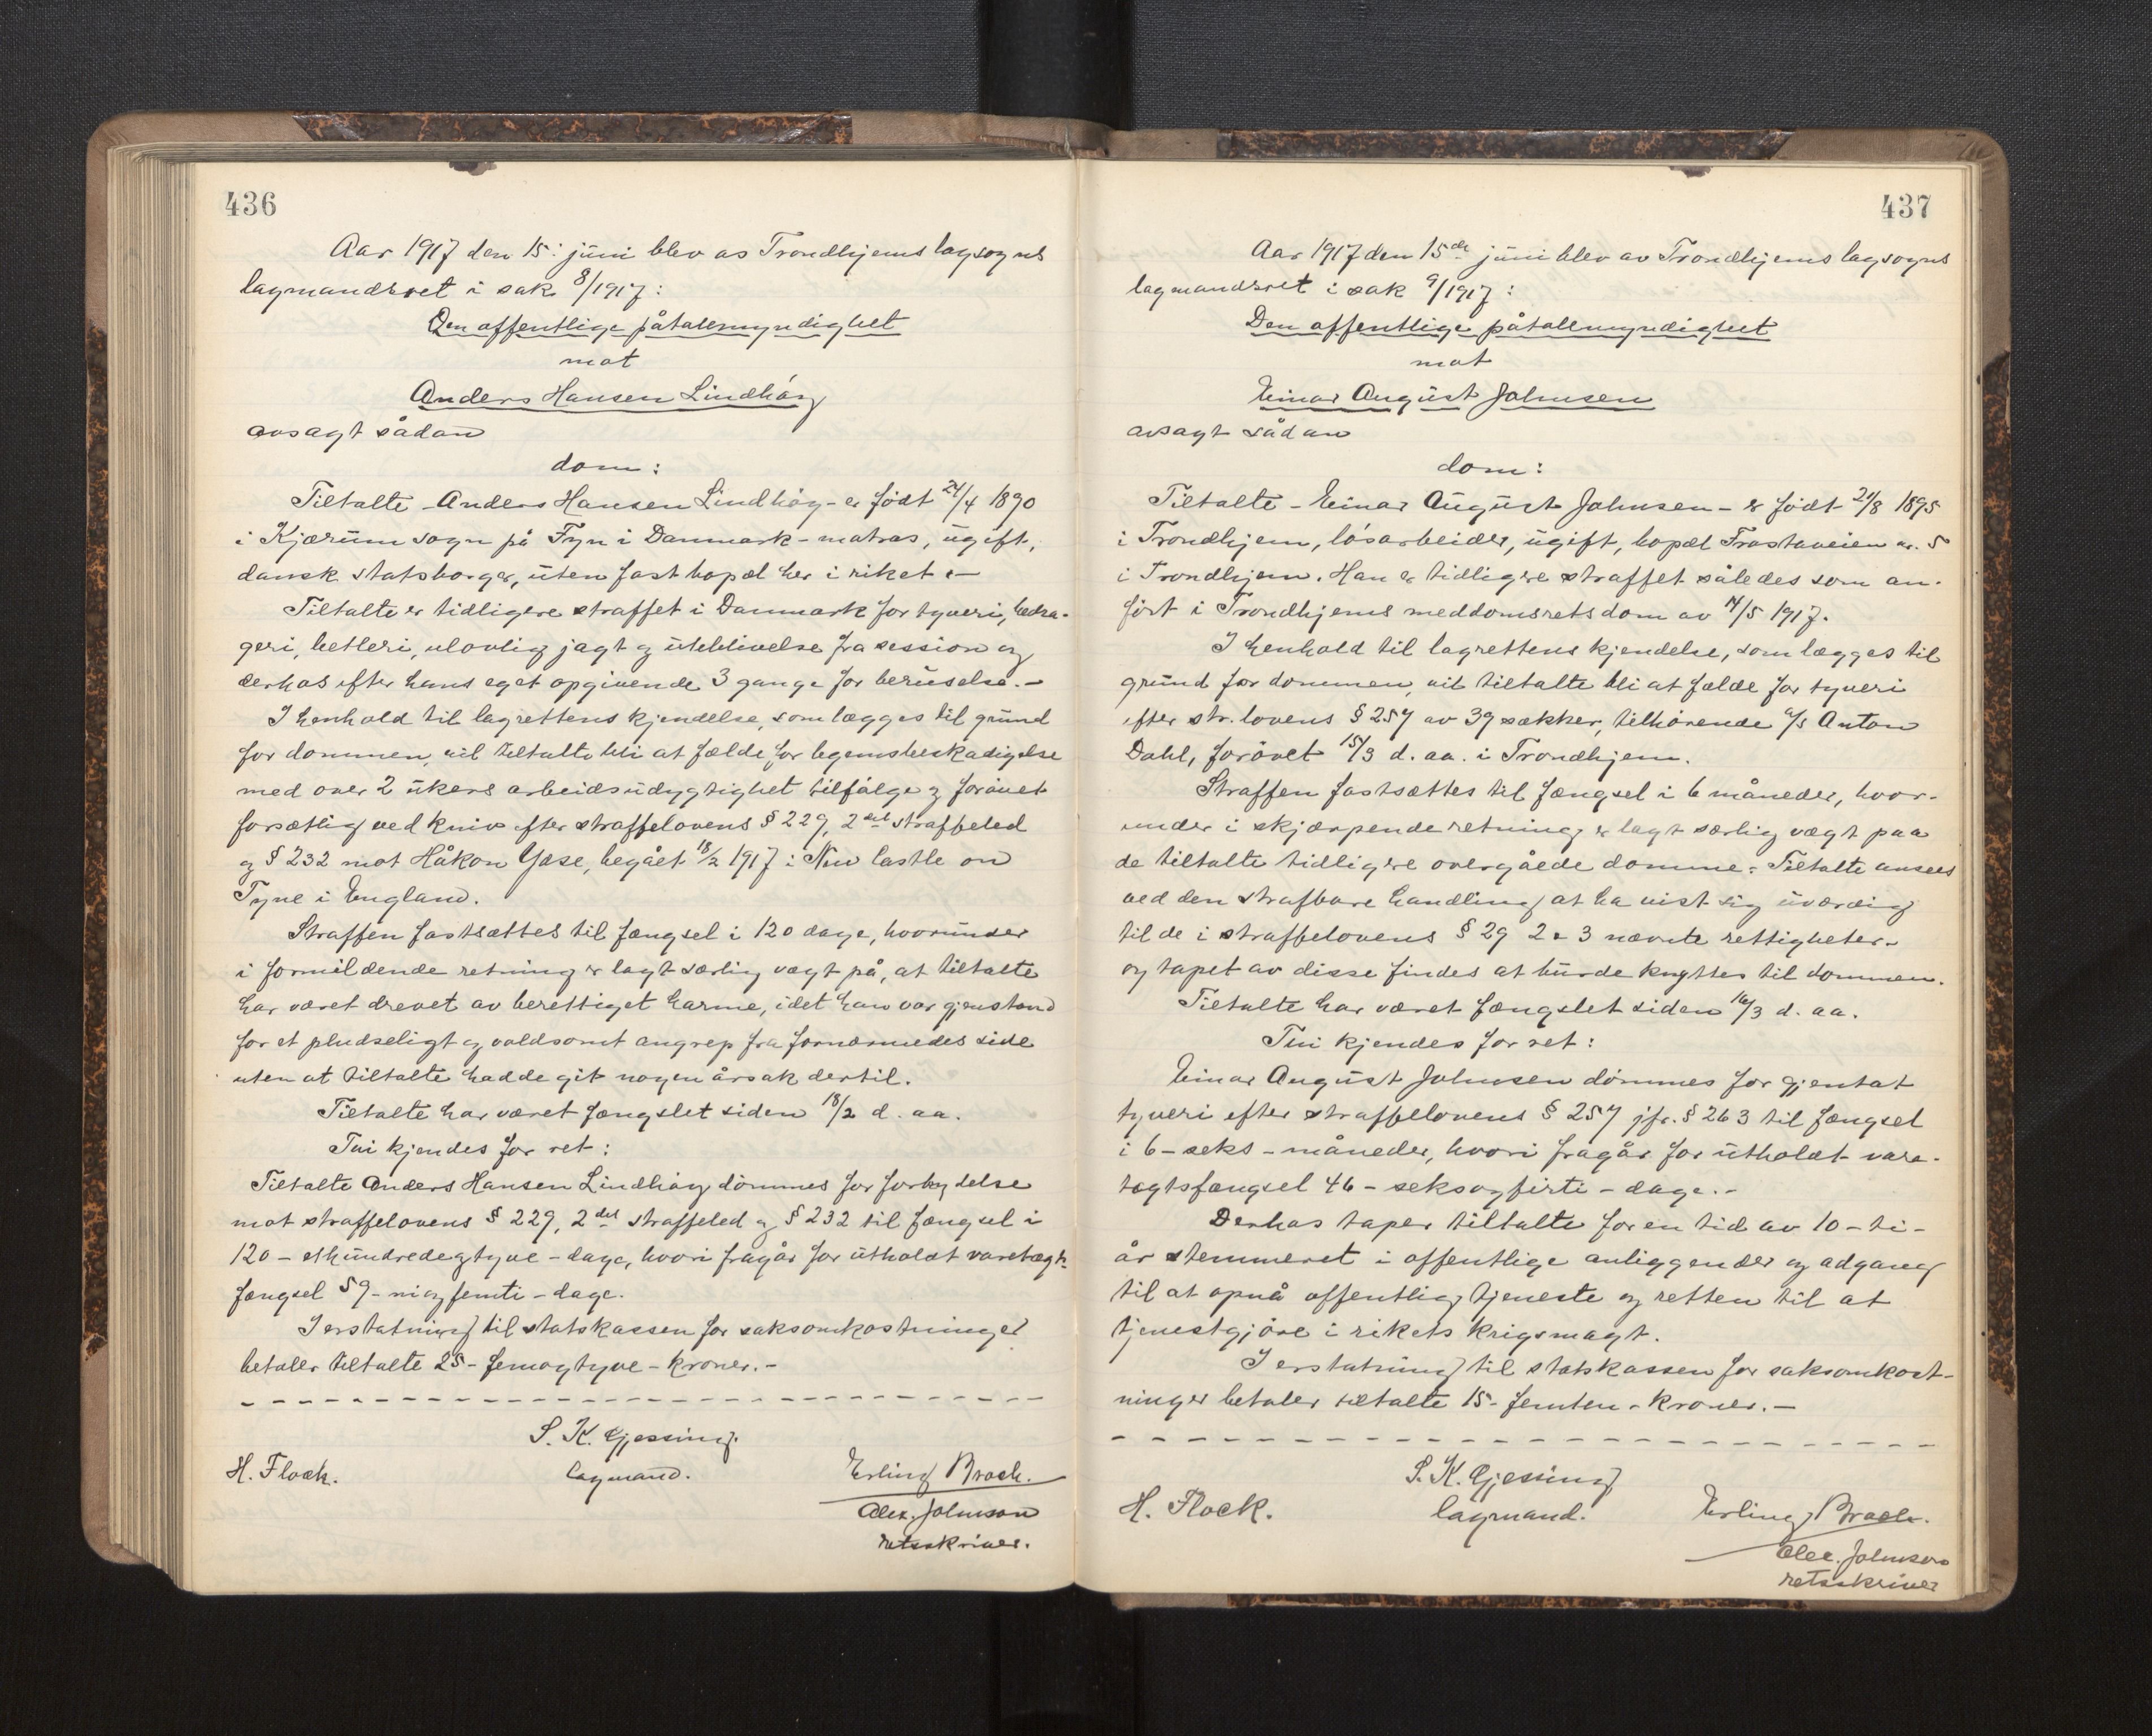 436
Aar 1917 den 15: juni blev av Trondhjems lagsogns
lagmandsret i sak 8/1917:
Den offentlige påtalemyndighet
mot
Anders Hansen Lindhöy
avsagt sådan
dom:
Tiltalte - Anders Hansen Lindhöy - er født 24/4 1890
i Kjærum sogn på Fyn i Danmark - matros, ugift,
dansk statsborger, uten fast bopæl her i riket. -
Tiltalte er tidligere straffet i Danmark for tyveri, bedra-
geri, betleri, ulovlig jagt og utebblivelse fra session og
derhos efter hans eget opgivende 3 gange for beruselse. -
I henhold til lagrettens kjendelse, som lægges til grund
for dommen, vil tiltalte bli at fælde for legemsbeskadigelse
med over 2 ukers arbeidsudygtighet tilfølge og forøvet
forsætlig ved kniv efter straffelovens § 229, 2det straffeled
og § 232 mot Håkon Yase, begået 18/2 1917 i New Castle on
Tyne i England.
Straffen fastsættes til fængsel i 120 dage, hvorunder
i formildende retning er lagt særlig vægt på, at tiltalte
har været drevet av berettiget harme, idet han var gjenstand
for et pludseligt og voldsomt angrep fra fornærmedes side
uten at tiltalte hadde git nogen årsak dertil.
Tiltalte har været fængslet siden 18/2 d. aa.
Tui kjendes for ret:
Tiltalte Anders Hansen Lindhöy dömmes for forbrydelse
mot straffelovens § 229, 2det straffeled og § 232 til fængsel i
120 - ethundredeogtyve - dage, hvori fragår for utholdt varetægts-
fængsel 59 - niogfemti - dage.
I erstatning til statskassen for saksomkostninger
betaler tiltalte 25 - femogtyve - kroner. -
S. K. Gjessing.
H. Flock. lagmand. Erling Broch.
Alex. Johnson
retsskriver.
437
Aar 1917 den 15de juni blev av Trondhjems lagsogns
lagmandsret i sak 9/1917:
Den offentlige påtalemyndighet
mot
Einar August Johnsen
avsagt sådan
dom:
Tiltalte - Einar August Johnsen - er født 21/8 1895
i Trondhjem, lösarbeider, ugift, bopæl Frostaveien nr. 5
i Trondhjem. Han er tidligere straffet således som an-
fört i Trondhjems meddomsrets dom av 14/5 1917.
I henhold til lagrettens kjendelse, som lægges til
grund for dommen, vil tiltalte bli at fælde for tyveri
efter str. lovens § 257 av 39 sækker, tilhørende a/s Anton
Dahl, forövet 15/3 d. aa. i Trondhjem.
Straffen fastsættes til fængsel i 6 måneder, hvor-
under i skjærpende retning er lagt særlig vægt paa
de tiltalte tidligere overgåede domme. Tiltalte ansees
ved den strafbare handling at ha vist sig uværdig
til de i straffelovens § 29 2 & 3 nævnte rettigheter -
og tapet av disse findes at burde knyttes til dommen.
Tiltalte har været fængslet siden 16/3 d. aa.
Tui kjendes for ret:
Einar August Johnsen dömmes for gjentat
tyveri efter straffelovens § 257 jfr. § 263 til fængsel
i 6 - seks - måneder, hvori fragår for utholdt vare-
tægtsfængsel 46 - seksogfirti - dage. -
Derhos taper tiltalte for en tid av 10 - ti -
år stemmeret i offentlige anliggender og adgang
til at opnå offentlig tjeneste og retten til at
tjenestgjöre i rikets krigsmagt.
I erstatning til statskassen for saksomkost-
ninger betaler tiltalte 15 - femten - kroner. -
S. K. Gjessing
H. Flock. lagmand. Erling Broch.
Alex. Johnson
retsskriver